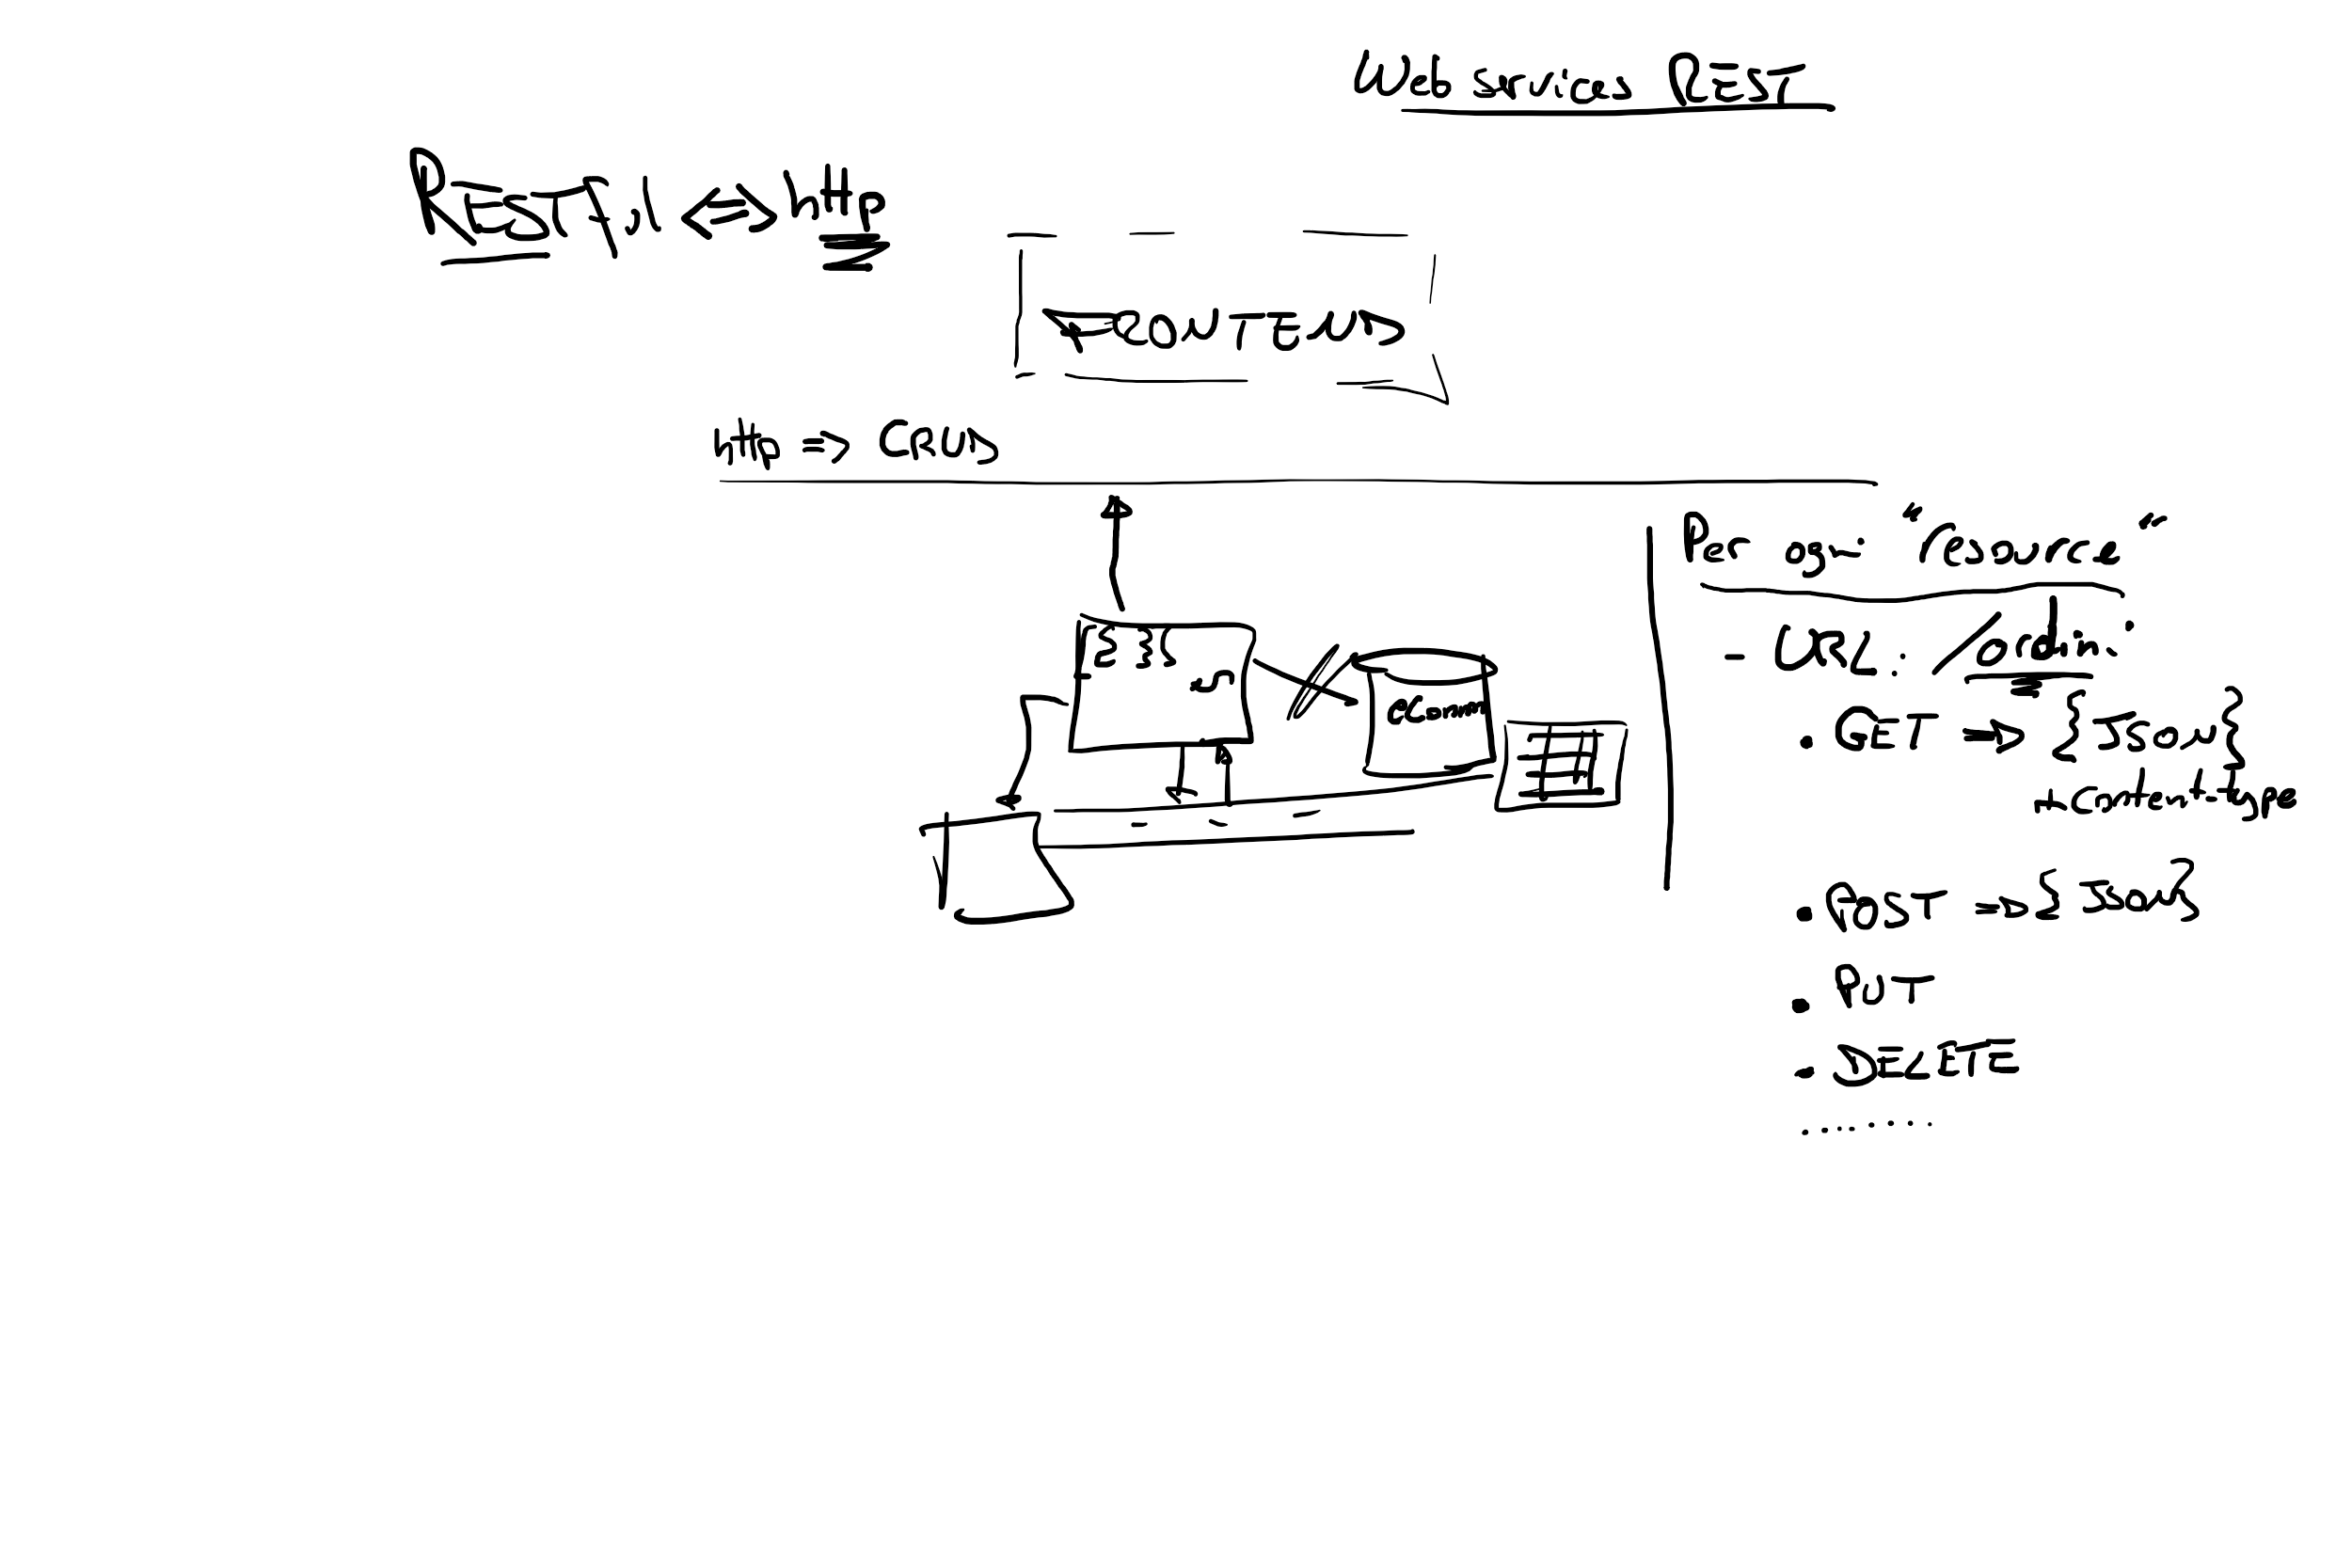 Web services REST
RESTful <=> http
FRONTEND
http => CRUD
Per ogni "resource"
- URL: /ordini
eComm
. GET => {JSON}
+ Content-type
. POST => {JSON}
. PUT
. DELETE
........